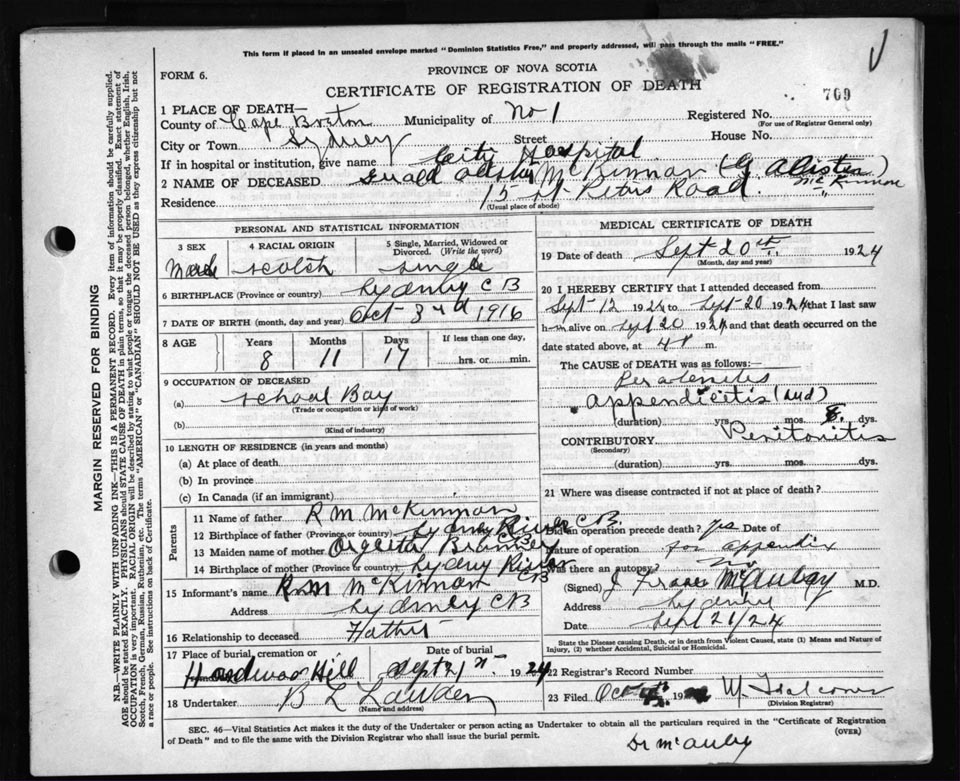 This form if placed in an unsealed envelope marked "Dominion Statistics Free," and properly addressed, will pass through the mails "FREE."
FORM 6.
PROVINCE OF NOVA SCOTIA
CERTIFICATE OF REGISTRATION OF DEATH
769
1 PLACE OF DEATH—
County of Cape Breton Municipality of No 1 Registered No.
(For use of Registrar General only)
City or Town Sydney Street House No.
If in hospital or institution, give name City Hospital
2 NAME OF DECEASED Gerald McKinnon (G. Alister McKinnon)
Residence 15 St Peters Road
(Usual place of abode)
PERSONAL AND STATISTICAL INFORMATION
3 SEX 4 RACIAL ORIGIN 5 Single, Married, Widowed or Divorced. (Write the word)
Male Scotch Single
6 BIRTHPLACE (Province or country) Sydney C B
7 DATE OF BIRTH (month, day and year) Oct 3rd 1916
8 AGE Years Months Days If less than one day,
8 11 17 hrs. or min.
9 OCCUPATION OF DECEASED
(a) School Boy
(Trade or occupation or kind of work)
(b)
(Kind of industry)
10 LENGTH OF RESIDENCE (in years and months)
(a) At place of death
(b) In province
(c) In Canada (if an immigrant)
Parents
11 Name of father R M McKinnon
12 Birthplace of father (Province or country) Sydney River CB
13 Maiden name of mother
14 Birthplace of mother (Province or country) Sydney River CB
15 Informant's name R M McKinnon
Address Sydney CB
16 Relationship to deceased Father
17 Place of burial, cremation or Date of burial
Hardwood Hill Sept 21 1924
18 Undertaker B L
(Name and address)
MEDICAL CERTIFICATE OF DEATH
19 Date of death Sept 20th 1924
(Month, day and year)
20 I HEREBY CERTIFY that I attended deceased from
Sept 12 1924 to Sept 20 1924 that I last saw
h alive on Sept 20 1924 and that death occurred on the
date stated above, at 4 m.
The CAUSE OF DEATH was as follows:—
Appendicitis (and)
(duration) yrs. mos. dys.
CONTRIBUTORY Peritonitis
(Secondary)
(duration) yrs. mos. dys.
21 Where was disease contracted if not at place of death?
Did an operation precede death? yes Date of
Nature of operation for appendix
Was there an autopsy? no
(Signed) J Fraser M.D.
Address Sydney
Sept 21/24
State the Disease causing Death, or in death from Violent Causes, state (1) Means and Nature of Injury, (2) whether Accidental, Suicidal or Homicidal.
22 Registrar's Record Number
23 Filed Oct 19
(Division Registrar)
SEC. 46—Vital Statistics Act makes it the duty of the Undertaker or person acting as Undertaker to obtain all the particulars required in the "Certificate of Registration
of Death" and to file the same with the Division Registrar who shall issue the burial permit.
(OVER)
MARGIN RESERVED FOR BINDING
N.B.—WRITE PLAINLY WITH UNFADING INK—THIS IS A PERMANENT RECORD. Every item of information should be carefully supplied.
AGE should be stated EXACTLY. PHYSICIANS should STATE CAUSE OF DEATH in plain terms, so that it may be properly classified. Exact statement of
OCCUPATION is very important. RACIAL ORIGIN will be described by stating to what people or tongue the deceased person belonged, whether English, Irish,
Scotch, French, German, Russian, Ruthenian, etc. The terms "AMERICAN" or "CANADIAN" SHOULD NOT BE USED as they express citizenship but not
a race or people. See instructions on back of Certificate.